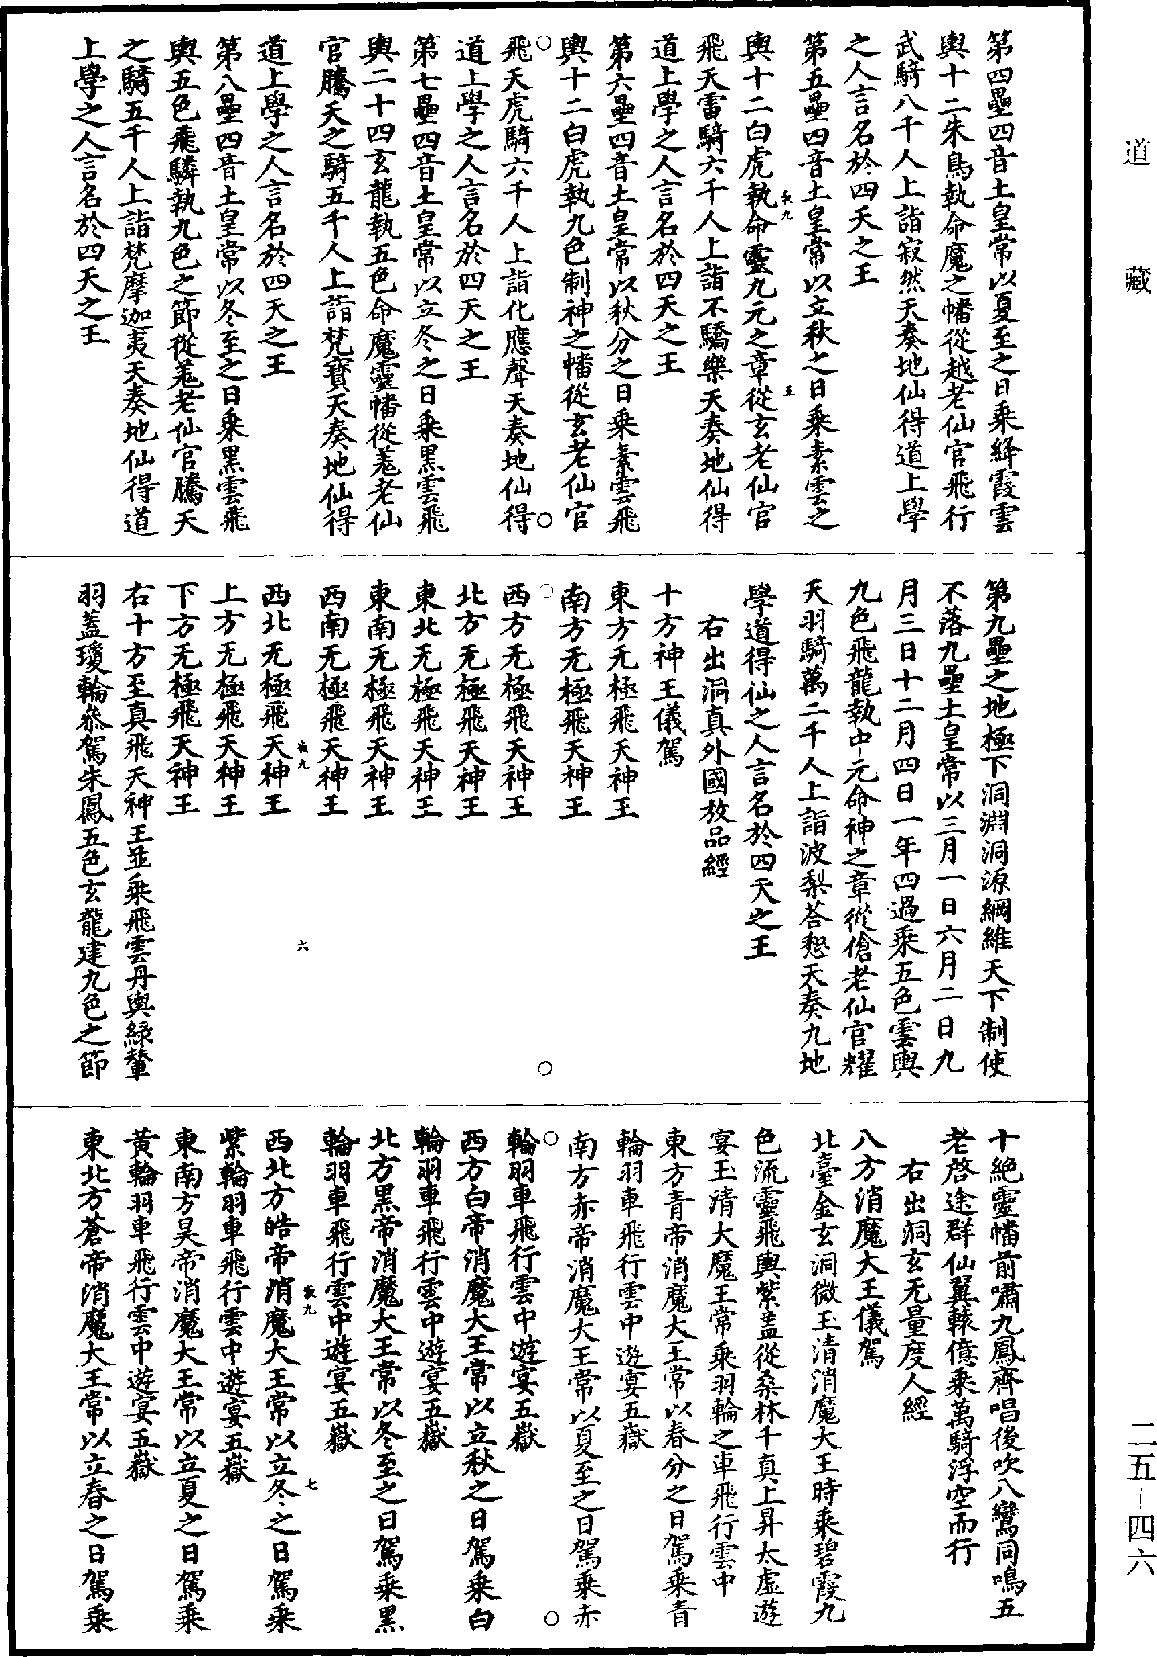 道藏
二五-四六
第四壘四音土皇常以夏至之日乘絳霞雲
輿十二朱鳥執命魔之幡從越老仙官飛行
武騎八千人上詣寂然天奏地仙得道上學
之人言名於四天之王
第五壘四音土皇常以立秋之日乘素雲之
輿十二白虎執命靈九元之章從玄老仙官
飛天雷騎六千人上詣不驕樂天奏地仙得
道上學之人言名於四天之王
第六壘四音土皇常以秋分之日乘素雲飛
輿十二白虎執九色制神之幡從玄老仙官
飛天虎騎六千人上詣化應聲天奏地仙得
道上學之人言名於四天之王
第七壘四音土皇常以立冬之日乘黑雲飛
輿二十四玄龍執五色命魔靈幡從羗老仙
官騰天之騎五千人上詣梵寶天奏地仙得
道上學之人言名於四天之王
第八壘四音土皇常以冬至之日乘黑雲飛
輿五色飛驎執九色之節從羗老仙官騰天
之騎五千人上詣梵摩迦夷天奏地仙得道
上學之人言名於四天之王
第九壘之地極下洞淵洞源綱維天下制使
不落九壘土皇常以三月一日六月二日九
月三日十二月四日一年四過乘五色雲輿
九色飛龍執中元命神之章從傖老仙官耀
天羽騎萬二千人上詣波梨荅惒天奏九地
學道得仙之人言名於四天之王
右出洞真外國放品經
十方神王儀駕
東方无極飛天神王
南方无極飛天神王
西方无極飛天神王
北方无極飛天神王
東北无極飛天神王
東南无極飛天神王
西南无極飛天神王
西北无極飛天神王
上方无極飛天神王
下方无極飛天神王
右十方至真飛天神王並乘飛雲丹輿綠輦
羽蓋瓊輪參駕朱鳳五色玄龍建九色之節
十絕靈幡前嘯九鳳齊唱後吹八鸞同鳴五
老啓途群仙翼轅億乘萬騎浮空而行
右出洞玄无量度人經
八方消魔大王儀駕
北臺金玄洞微玉清消魔大王時乘碧霞九
色流靈飛輿紫蓋從桑林千真上昇太虛遊
宴玉清大魔王常乘羽輪之車飛行雲中
東方青帝消魔大王常以春分之日駕乘青
輪羽車飛行雲中遊宴五嶽
南方赤帝消魔大王常以夏至之日駕乘赤
輪羽車飛行雲中遊宴五嶽
西方白帝消魔大王常以立秋之日駕乘白
輪羽車飛行雲中遊宴五嶽
北方黑帝消魔大王常以冬至之日駕乘黑
輪羽車飛行雲中遊宴五嶽
西北方皓帝消魔大王常以立冬之日駕乘
紫輪羽車飛行雲中遊宴五嶽
東南方昊帝消魔大王常以立夏之日駕乘
黃輪羽車飛行雲中遊宴五嶽
東北方蒼帝消魔大王常以立春之日駕乘